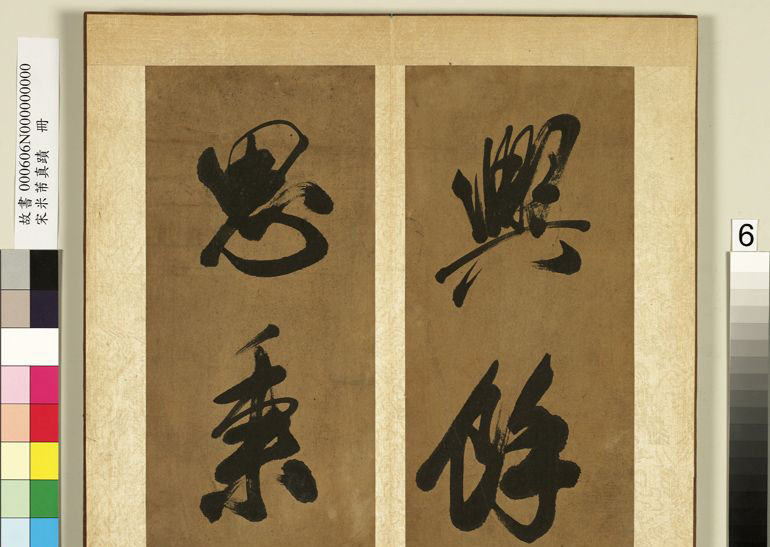 故書 000606N000000000
宋米芾真蹟 冊
興餘
思秉
6